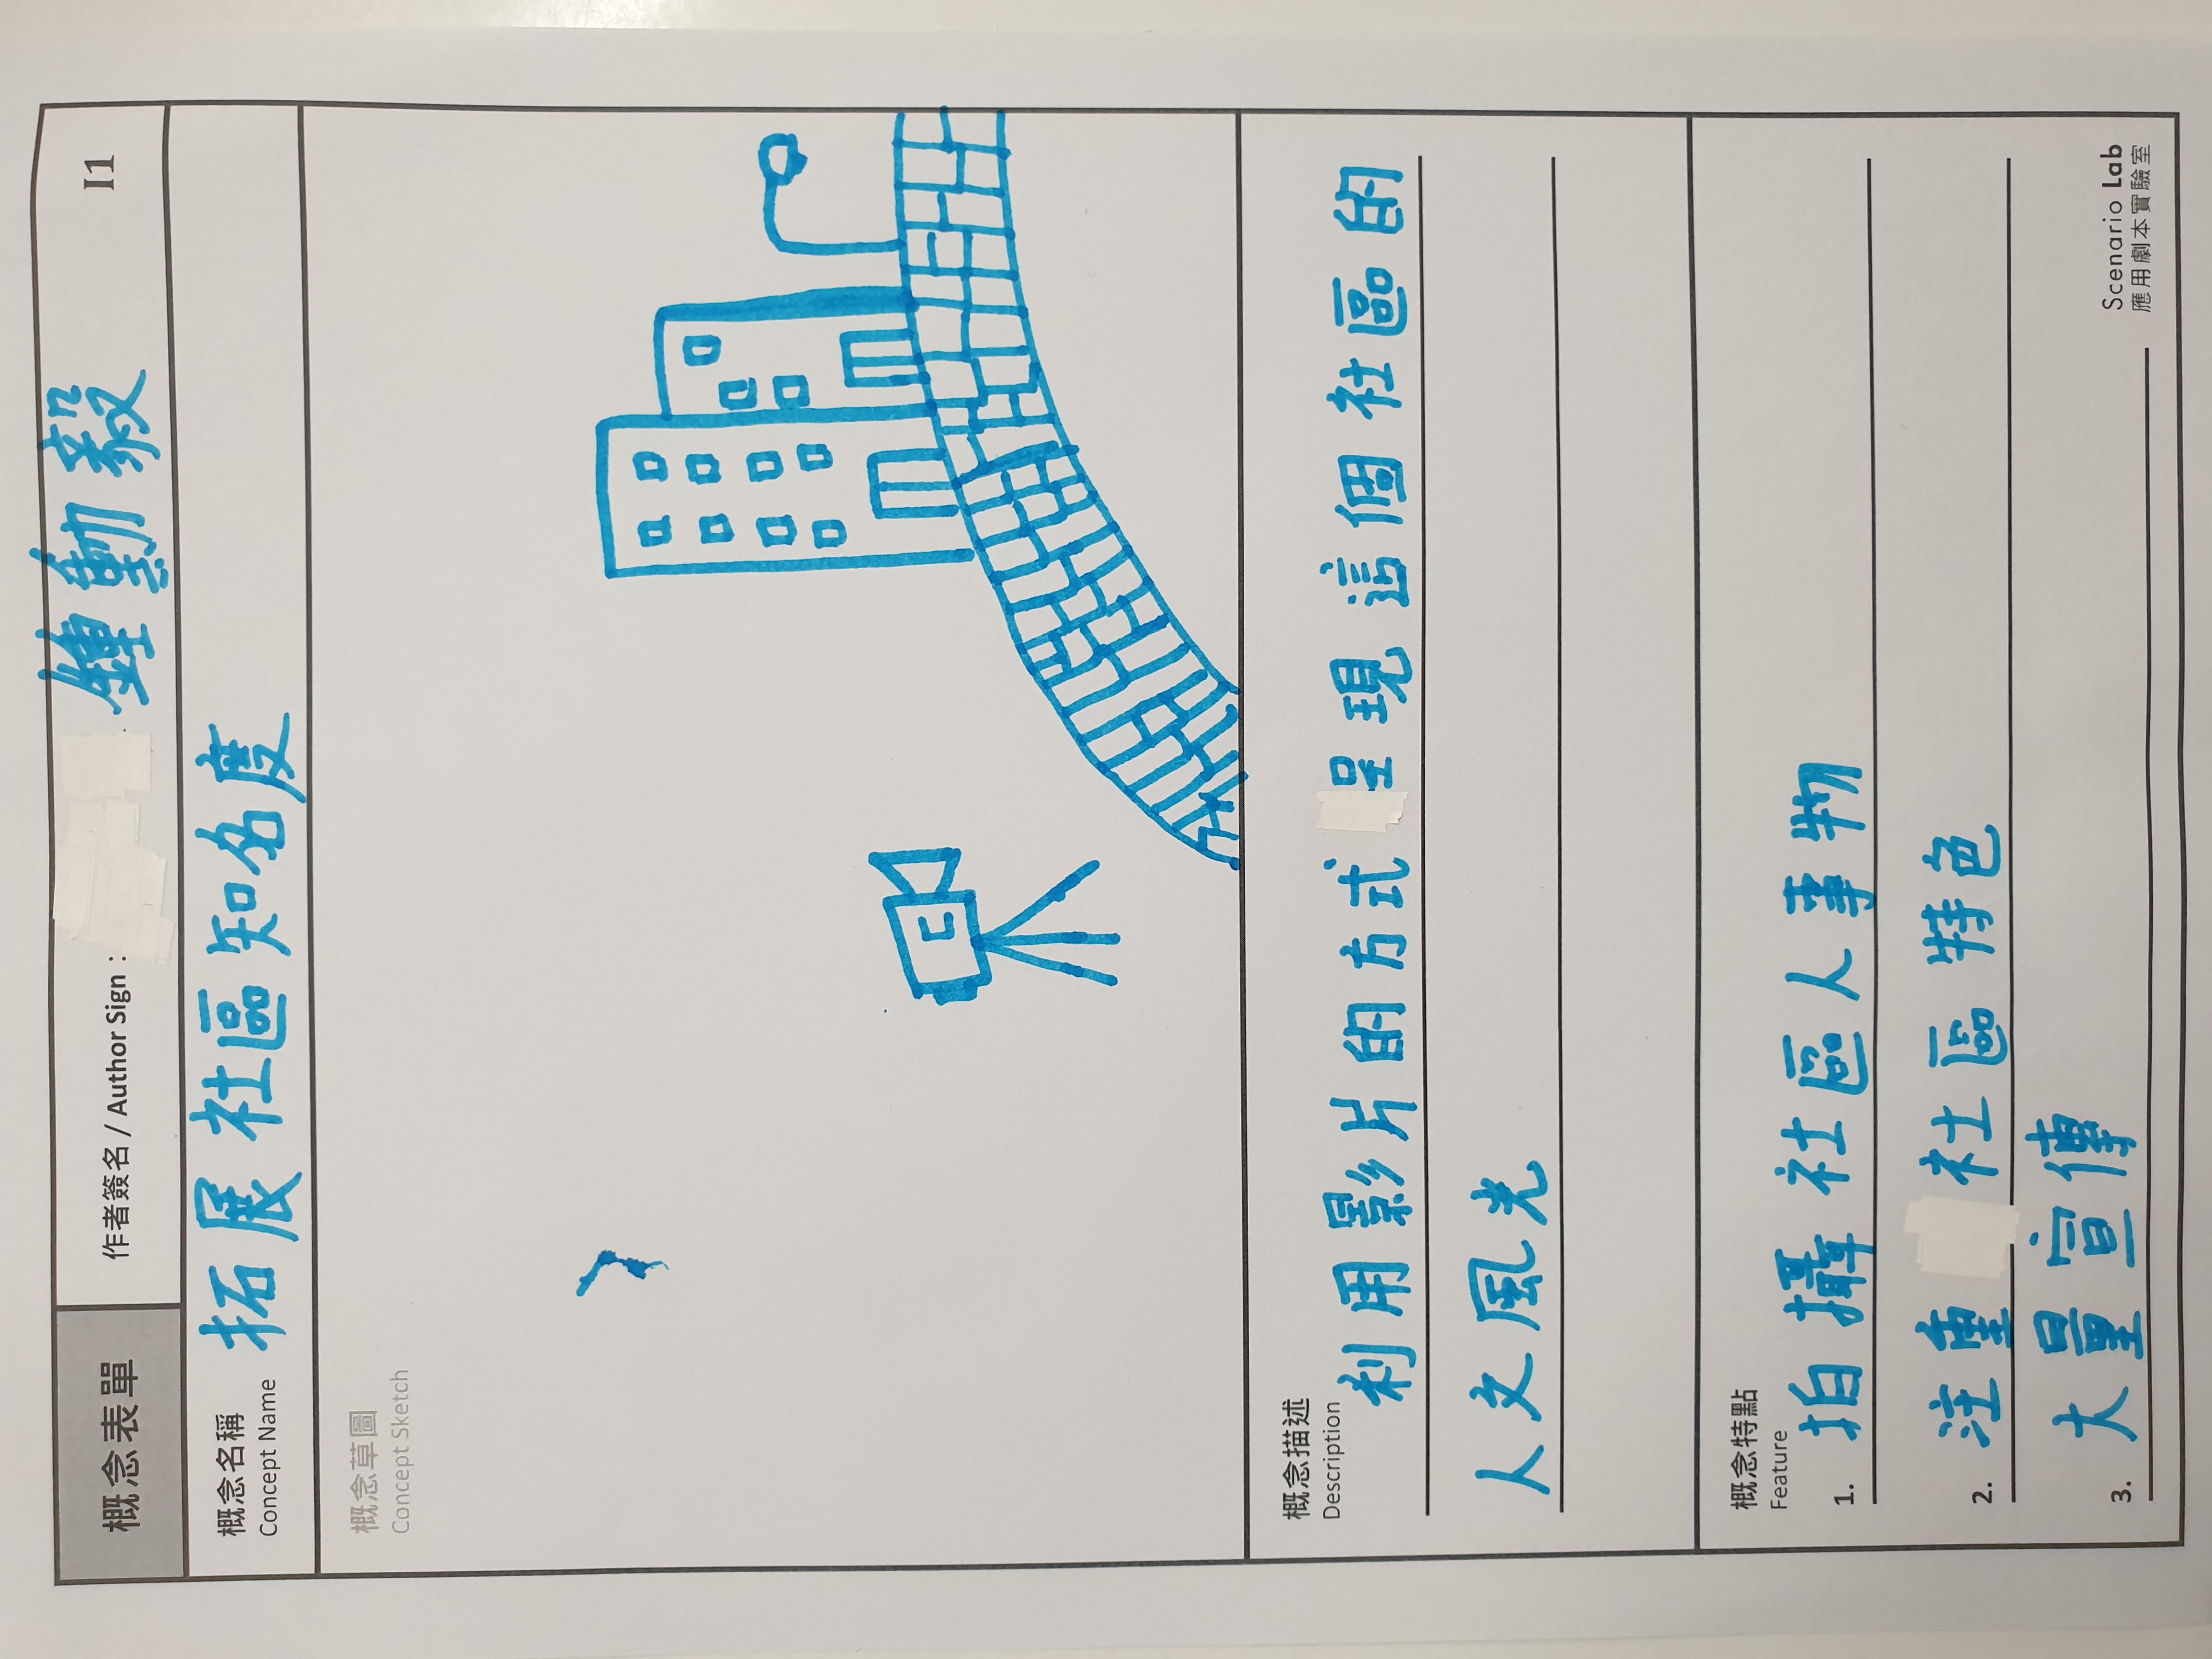 概念表單
作者簽名 / Author Sign : 鍾勳毅
I1
概念名稱
Concept Name
拓展社區知名度
概念草圖
Concept Sketch
概念描述
Description
利用影片的方式呈現這個社區的
人文風光
概念特點
Feature
1. 拍攝社區人事物
2. 注重社區特色
3. 大量宣傳
Scenario Lab
應用劇本實驗室